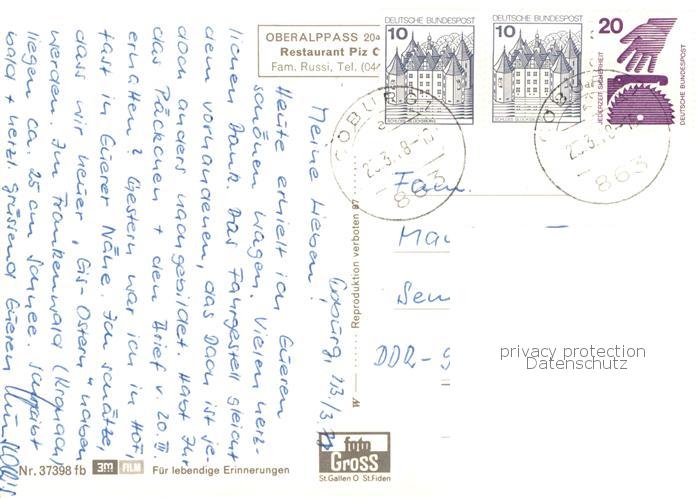 OBERALPPASS 204
Restaurant Piz C
Fam. Russi, Tel. (04
DEUTSCHE BUNDESPOST
10
SCHLOSS GLÜCKSBURG
DEUTSCHE BUNDESPOST
10
SCHLOSS GLÜCKSBURG
20
JEDERZEIT SICHERHEIT
DEUTSCHE BUNDESPOST
COBURG
863
COBURG
863
Coburg, 23./3.
Meine Lieben!
Heute erhielt ich Eueren
schönen Wagen. Vielen herz-
lichen Dank. Das Fahrgestell gleicht
dem vorhandenen, das Dach ist je-
doch anders nachgebildet. Habt Ihr
das Päckchen + den Brief v. 20. III.
erhalten? Gestern war ich in Hof,
fast in Euerer Nähe. Ich schätze,
dass wir heuer "Eis-Ostern" haben
werden. Im Frankenwald (Kronach)
liegen ca. 25 cm Schnee. Schreibt
bald + herzl. grüssend Eueren
Fam.
Mau
Sem
DDR-9
Reproduktion verboten 87
W
privacy protection
Datenschutz
foto
Gross
St.Gallen O St.Fiden
Nr. 37398 fb 3M FILM Für lebendige Erinnerungen